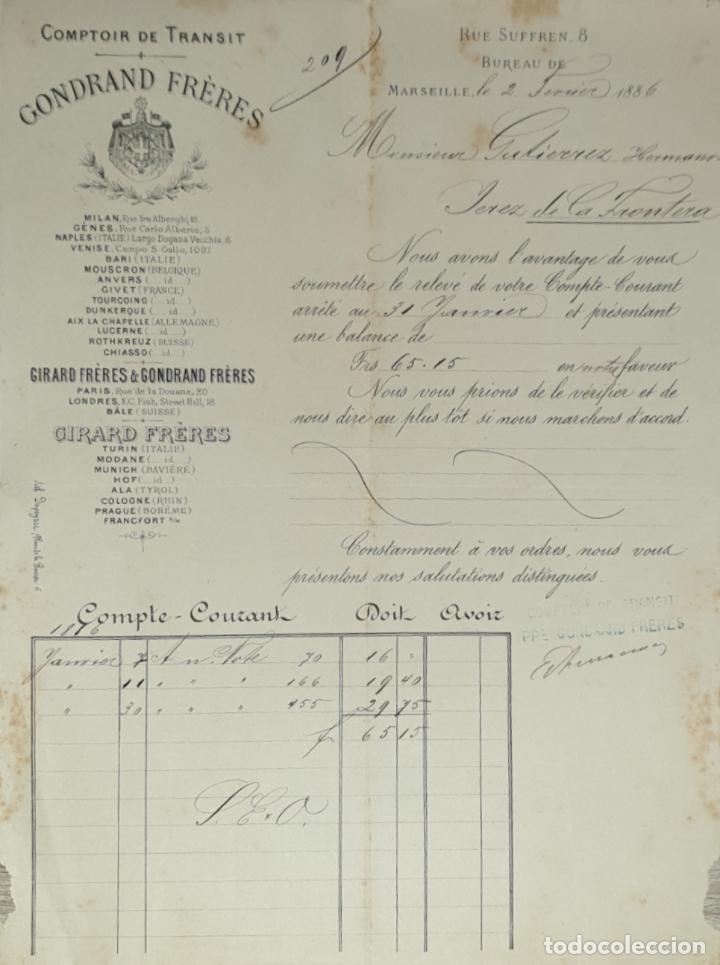 COMPTOIR DE TRANSIT
GONDRAND FRÈRES
209
RUE SUFFREN, 8
BUREAU DE
MARSEILLE, le 2 Fevrier 1886
Monsieur Gutierrez Hermanos
Jerez de La Frontera
MILAN, Rue Tre Alberghi, 18
GÊNES, Rue Carlo Alberto, 3
NAPLES (ITALIE) Largo Dogana Vecchia, 6
VENISE, Campo S. Gallo, 1092
BARI (ITALIE)
MOUSCRON (BELGIQUE)
ANVERS (... id ...)
GIVET (FRANCE)
TOURCOING (... id ...)
DUNKERQUE (... id ...)
AIX LA CHAPELLE (ALLEMAGNE)
LUCERNE (... id ...)
ROTHKREUZ (SUISSE)
CHIASSO (... id ...)
GIRARD FRÈRES & GONDRAND FRÈRES
PARIS, Rue de la Douane, 20
LONDRES, E.C. Fish, Street Hill, 18
BÂLE (SUISSE)
GIRARD FRÈRES
TURIN (ITALIE)
MODANE (... id ...)
MUNICH (BAVIÈRE)
HOF (... id ...)
ALA (TYROL)
COLOGNE (RHIN)
PRAGUE (BOHÊME)
FRANCFORT s/M
Nous avons l'avantage de vous
soumettre le relevé de votre Compte-Courant
arrêté au 31 Janvier et présentant
une balance de
Frs 65.15 en notre faveur
Nous vous prions de le vérifier et de
nous dire au plus tôt si nous marchons d'accord.
Constamment à vos ordres, nous vous
présentons nos salutations distinguées.
COMPTOIR DE TRANSIT
PPE GONDRAND FRÈRES
Compte-Courant Doit Avoir
1886
Janvier 7 A n. Note 70 16 "
" 11 " " " 166 19 40
" 30 " " " 455 29 75
f 65 15
S.E.O.
todocoleccion
todocoleccion.net